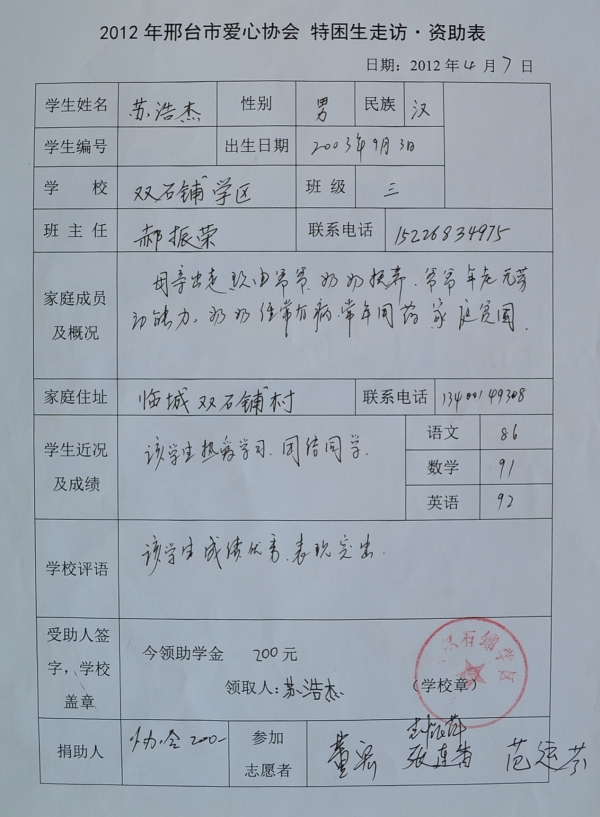 2012年邢台市爱心协会 特困生走访·资助表
日期：2012年4月7日
学生姓名 苏浩杰 性别 男 民族 汉
学生编号 出生日期 2003年9月3日
学校 双石铺学区 班级 三
班主任 郝振荣 联系电话 15226834975
家庭成员及概况
母亲出走 现由爷爷、奶奶抚养.爷爷年老无劳
动能力。奶奶经常有病.常年用药 家庭贫困.
家庭住址 临城双石铺村 联系电话 13400149308
学生近况及成绩
该学生热爱学习.团结同学.
语文 86
数学 91
英语 92
学校评语
该学生成绩优秀、表现突出.
受助人签字，学校盖章
今领助学金 200元
领取人：苏浩杰 （学校章）
石铺学区
捐助人 协会 200-
参加志愿者 董宏 范运芬